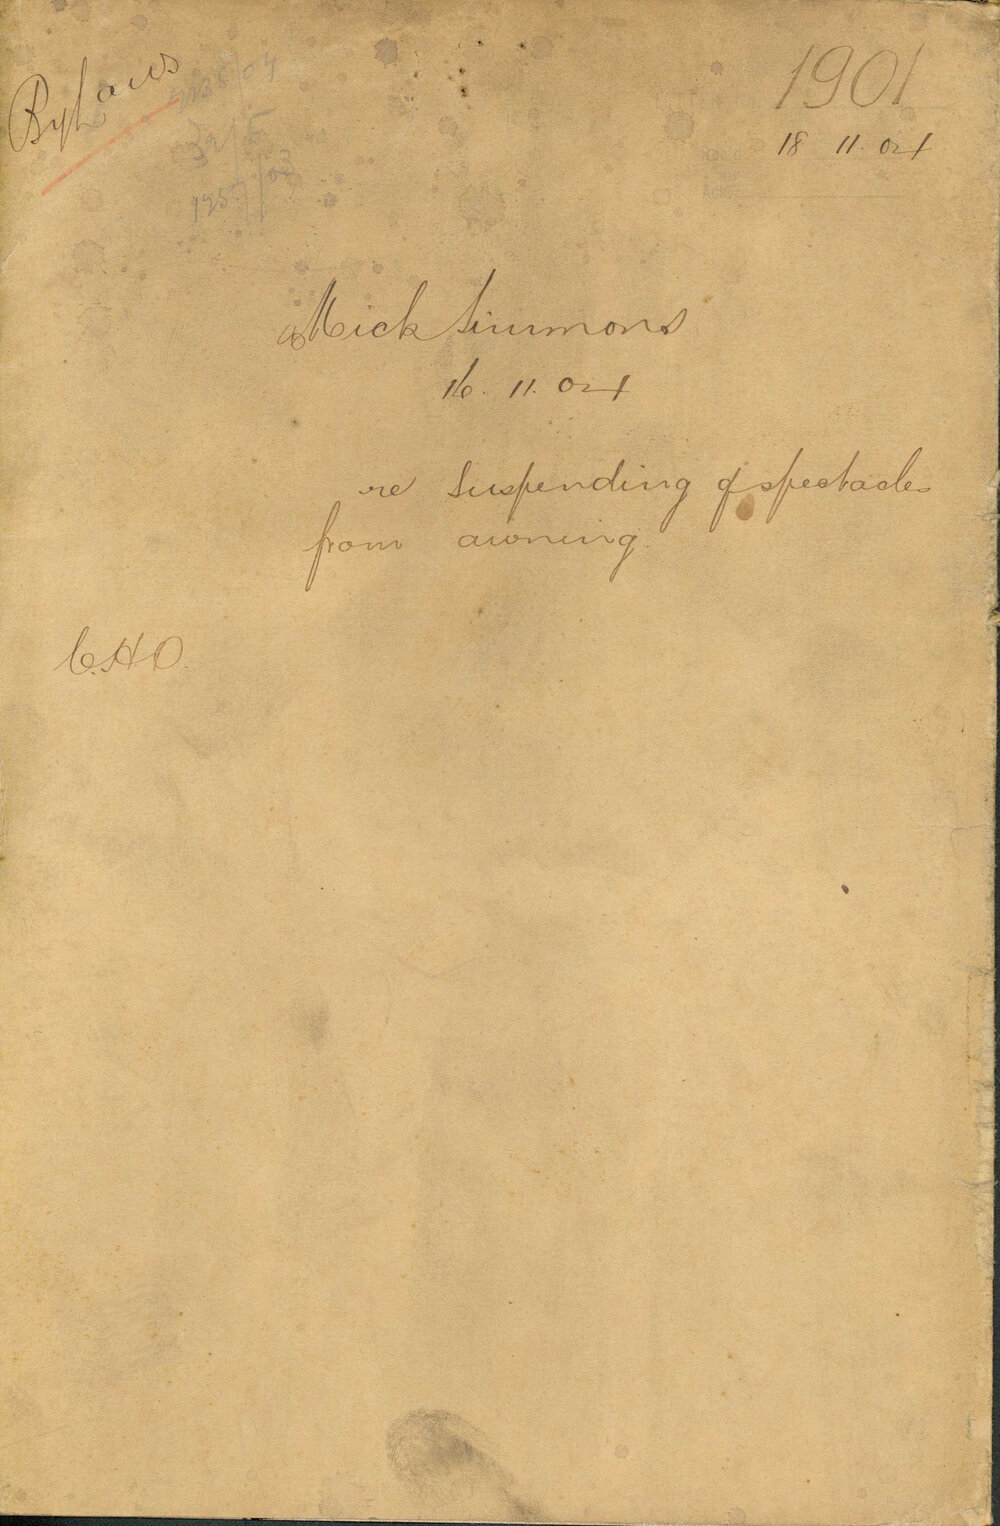 ByLaws
1901
18 11. 04
32/5
1257/03
Mick Simmons
16. 11. 04
re Suspending of spectacles
from awning.
C.H.O.